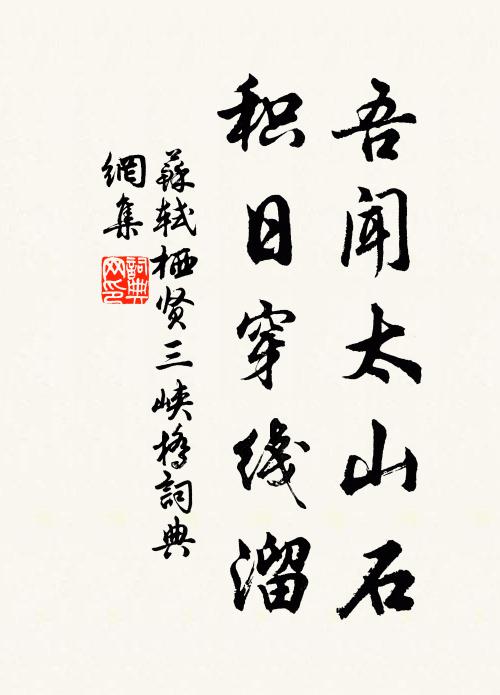 吾闻太山石
积日穿线溜
蘇軾栖贤三峡橋詞典
網集
詞典
网印